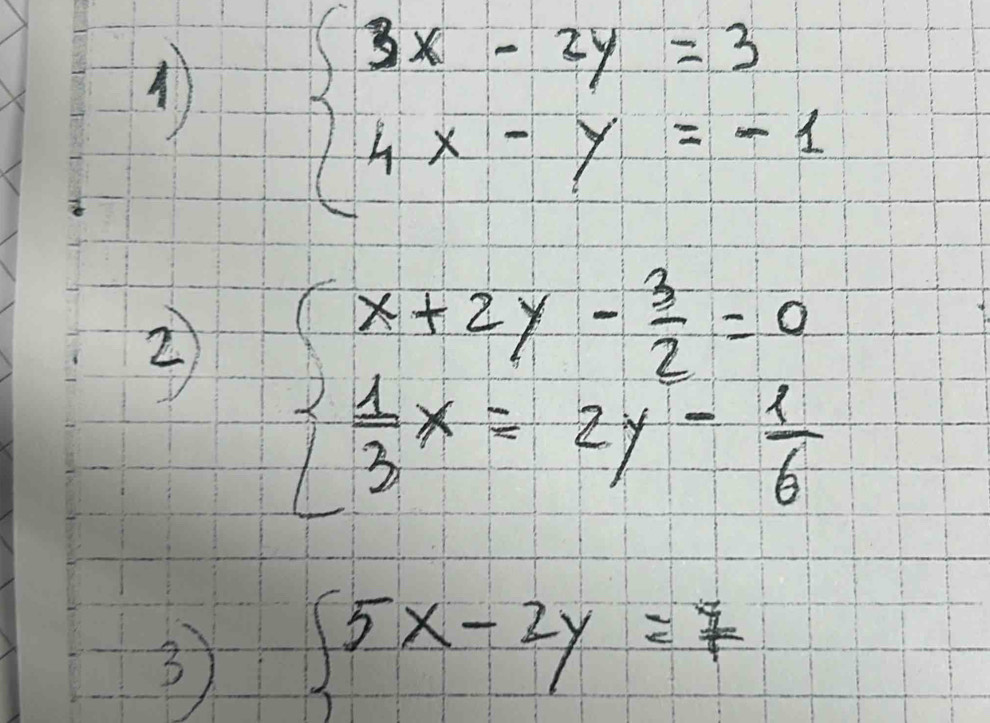 1) { 3x - 2y = 3
4x - y = - 1
2) { x + 2y - 3/2 = 0
1/3 x = 2y - 1/6
3) { 5x - 2y = 7